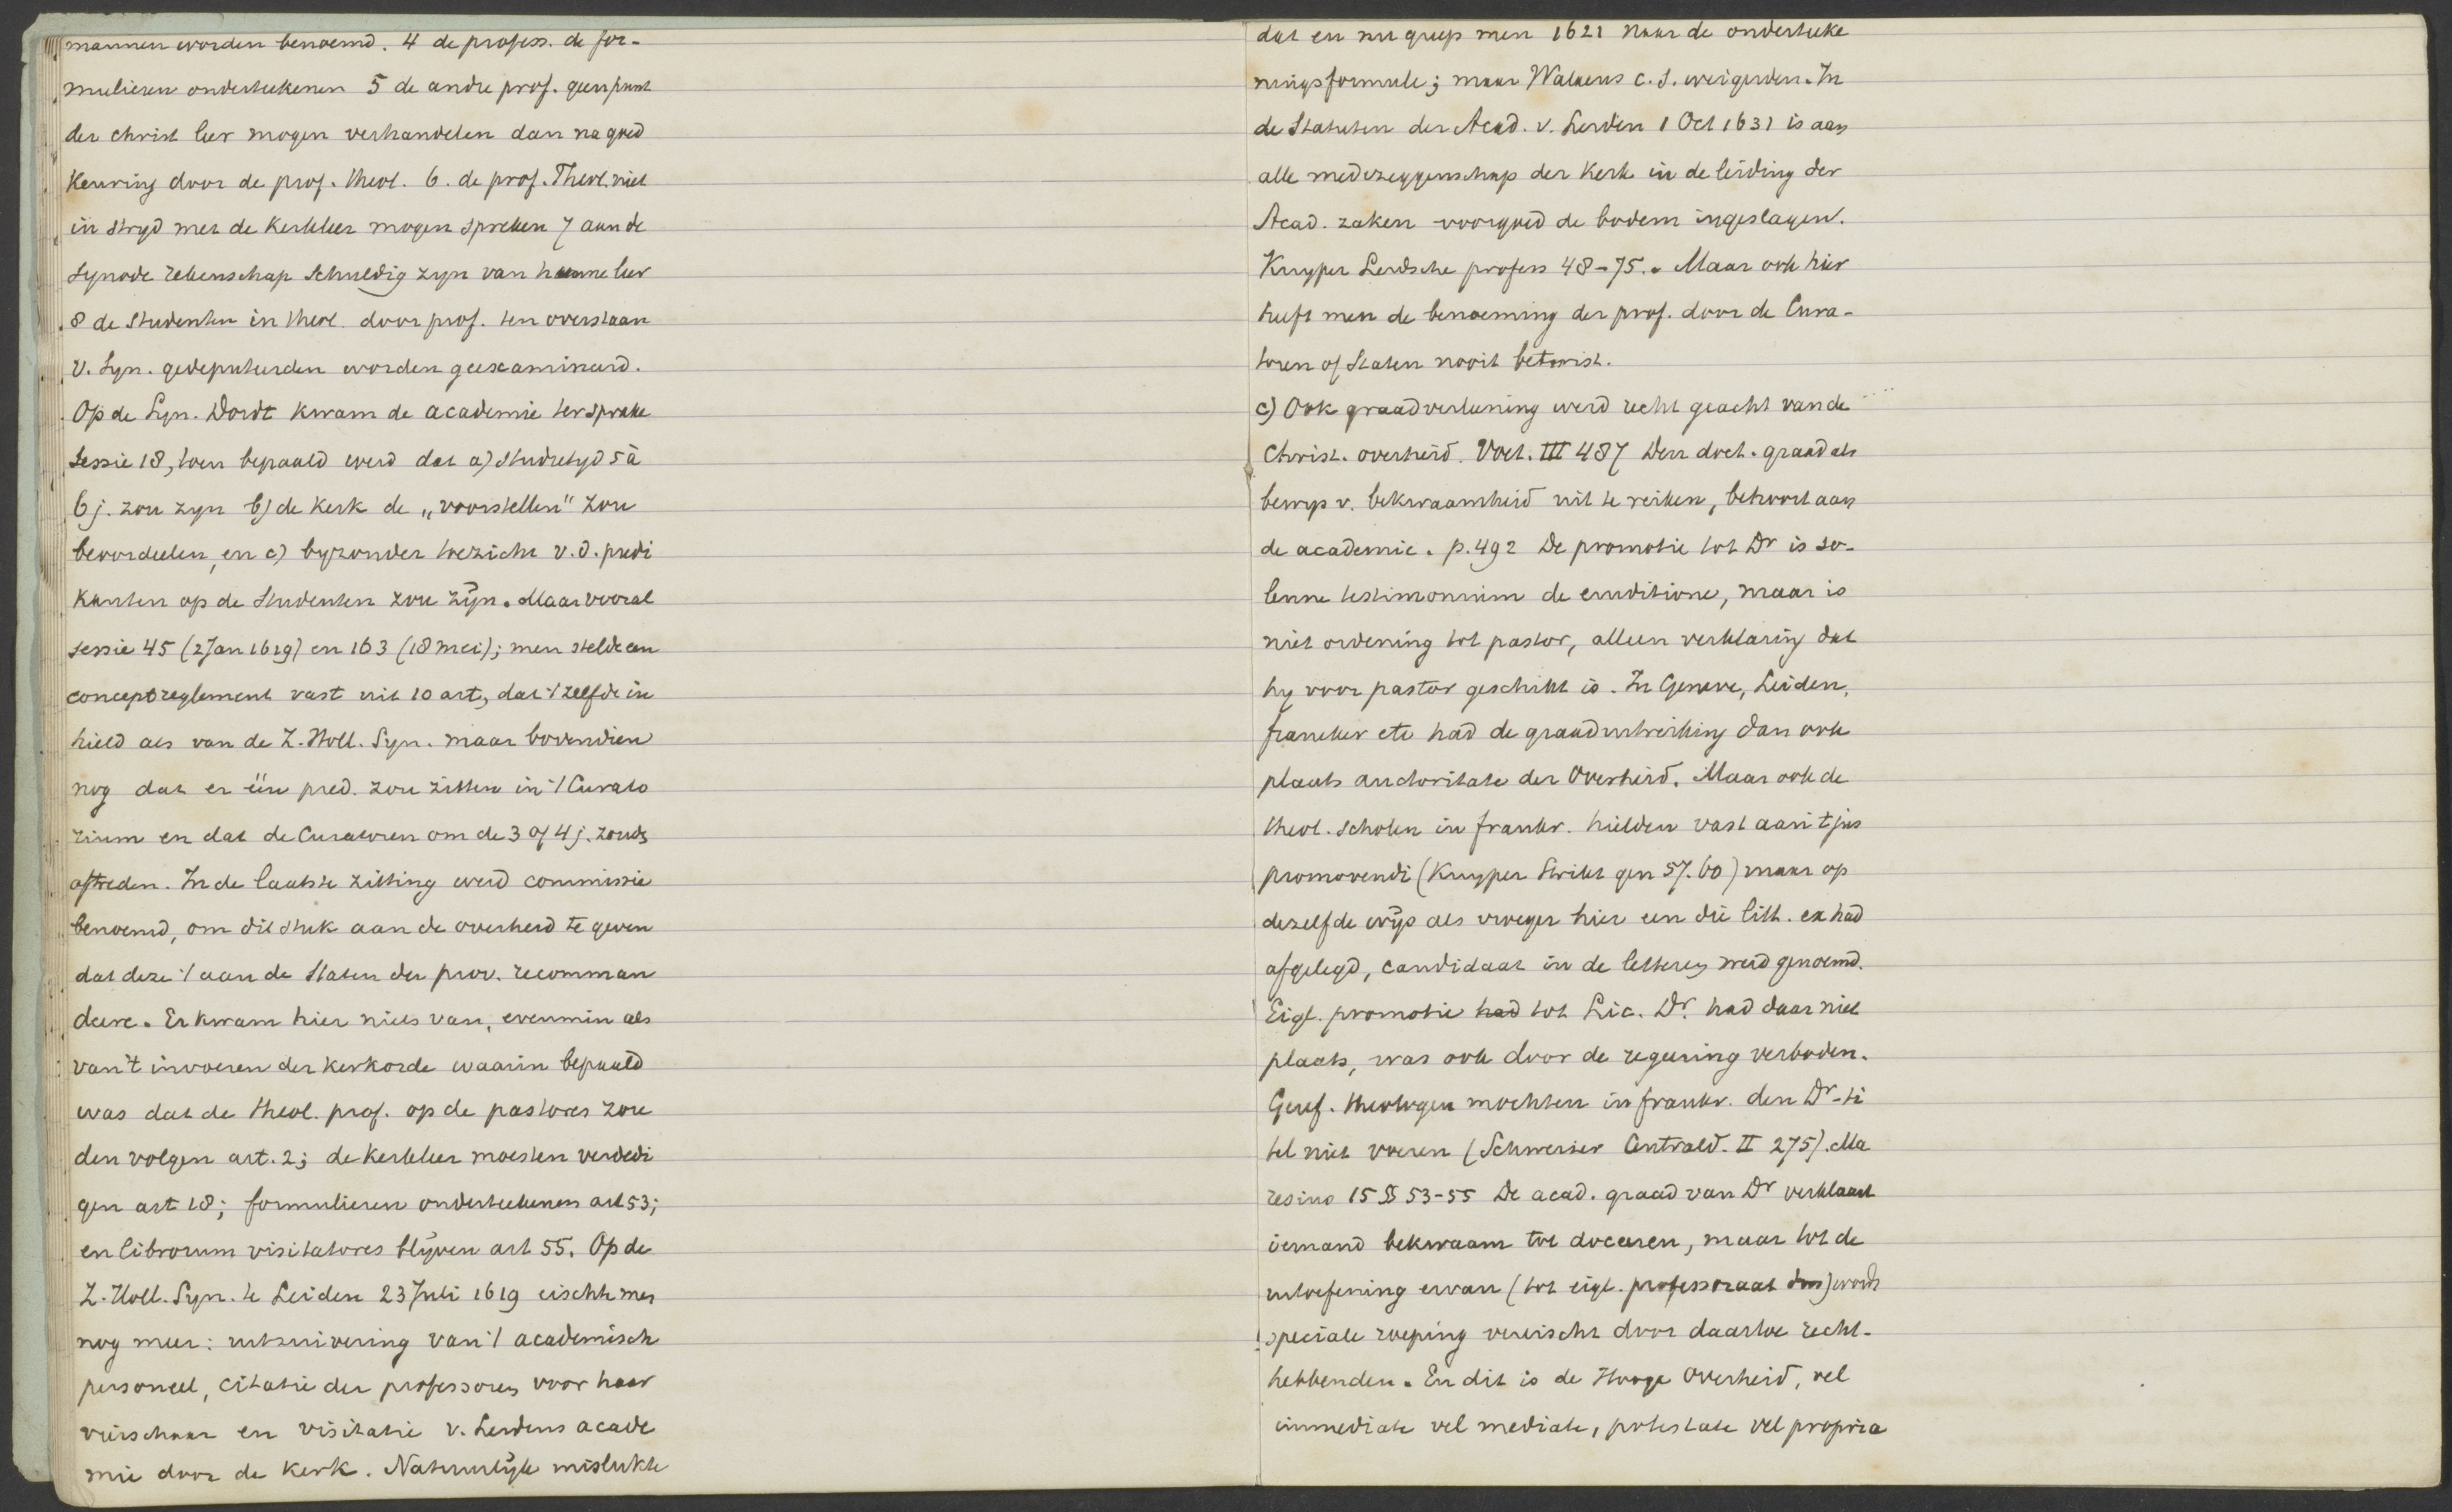 mannen worden benoemd. 4 de profess. de for-
mulieren onderteekenen 5 de andre prof. geen punt
der christ leer mogen verhandelen dan na goed
keuring door de prof. theol. 6. de prof. Theol. niet
in stryd met de kerkleer mogen spreken 7 aan de
synode rekenschap schuldig zyn van hunne leer
8 de studenten in theol. door prof. ten overstaan
v. Syn. gedeputeerden worden geexamineerd.
Op de Syn. Dordt kwam de academie ter sprake
sessie 18, toen bepaald werd dat a) studietyd 5 à
6 j. zou zyn b) de kerk de „voorstellen" zou
beoordeelen, en c) byzonder toezicht v. d. predi
kanten op de studenten zou zijn. Maar vooral
sessie 45 (2 Jan 1619) en 163 (18 mei); men stelde een
conceptreglement vast uit 10 art, dat 't zelfde in
hield als van de Z. Holl. Syn. maar bovendien
nog dat er één pred. zou zitten in 't Curato
rium en dat de Curatoren om de 3 of 4 j. zouds
aftreden. In de laatste zitting werd commissie
benoemd, om dit stuk aan de overheid te geven
dat deze 't aan de Staten der prov. recomman
deere. Er kwam hier niets van, evenmin als
van 't invoeren der kerkorde waarin bepaald
was dat de theol. prof. op de pastores zou
den volgen art. 2; de kerkleer moesten verdedi
gen art 18; formulieren onderteekenen art 53;
en librorum visitatores blijven art 55. Op de
Z. Holl. Syn. te Leiden 23 Juli 1619 eischte men
nog meer: uitzuivering van 't academisch
personeel, citatie der professoren voor haar
vierschaar en visitatie v. Leidens acade
mie door de kerk. Natuurlijk mislukte
dat en nu greep men 1621 naar de onderteeke
ningsformule; maar Walaeus c.s. weigerden. In
de Statuten der Acad. v. Leiden 1 Oct 1631 is aan
alle medezeggenschap der kerk in de leiding der
Acad. zaken voorgoed de bodem ingeslagen.
Kuyper Leidsche profess 48-75. Maar ook hier
heeft men de benoeming der prof. door de Cura-
toren of Staten nooit betwist.
c) Ook graadverleening werd recht geacht van de
Christ. overheid. Voet. III 487 Den doct. graad als
bewys v. bekwaamheid uit te reiken, behoort aan
de academie. p. 492 De promotie tot Dr is so-
lenne testimonium de eruditione, maar is
niet ordening tot pastor, alleen verklaring dat
hy voor pastor geschikt is. In Geneve, Leiden,
franeker etc had de graaduitreiking dan ook
plaats auctoritate der Overheid. Maar ook de
theol. scholen in frankr. hielden vast aan 't jus
promovendi (Kuyper Strikt gen 57. 60) maar op
dezelfde wijs als vroeger hier een die litt. ex had
afgelegd, candidaat in de letteren werd genoemd.
Eigl. promotie had tot Lic. Dr. had daar niet
plaats, was ook door de regeering verboden.
Geref. theologen mochten in frankr. den Dr-ti
tel niet voeren (Schweizer Centrald. II 275). Ma
resius 15 §§ 53-55 De acad. graad van Dr verklaart
iemand bekwaam tot doceeren, maar tot de
uitoefening ervan (tot eigl. professoraat dus) wordt
speciale roeping vereischt door daartoe recht-
hebbenden. En dit is de Hooge Overheid, vel
immediate vel mediate, potestate vel propria